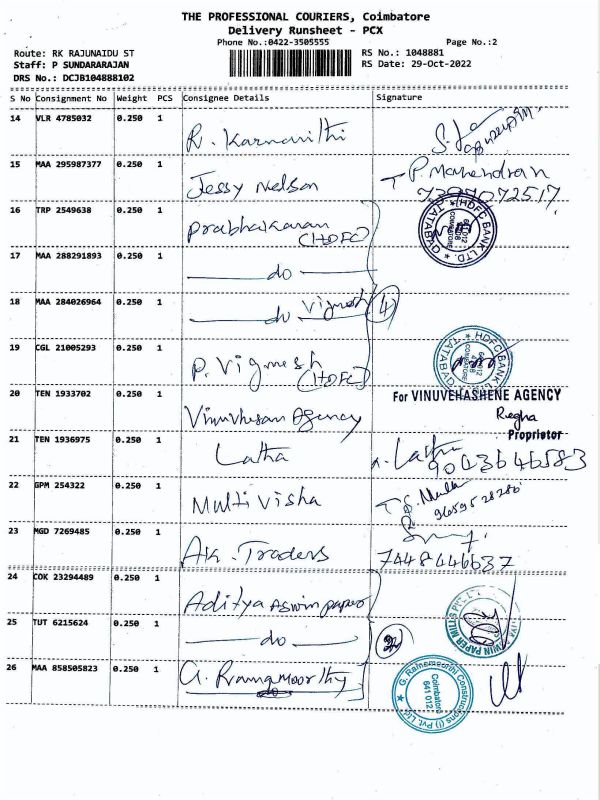 THE PROFESSIONAL COURIERS, Coimbatore
Delivery Runsheet - PCX
Phone No.:0422-3505555 Page No.:2
Route: RK RAJUNAIDU ST RS No.: 1048881
Staff: P SUNDARARAJAN RS Date: 29-Oct-2022
DRS No.: DCJB104888102
S No Consignment No Weight PCS Consignee Details Signature
14 VLR 4785032 0.250 1 R. Karnanithi
15 MAA 295987377 0.250 1 Jessy Nelson P. Mahendran
7397072517
16 TRP 2549638 0.250 1 Prabhakaran
(HDFC) HDFC BANK LTD. TATABAD COIMBATORE 641 012
17 MAA 288291893 0.250 1 do
18 MAA 284026964 0.250 1 do Vignesh 4
19 CGL 21005293 0.250 1 P. Vignesh
(HDFC) HDFC BANK TATABAD
20 TEN 1933702 0.250 1 Vinuvhesan Agency For VINUVEHASHENE AGENCY
Regha
Proprietor
21 TEN 1936975 0.250 1 Latha Latha
9003646583
22 GPM 254322 0.250 1 Multi Visha
9659528286
23 MGD 7269485 0.250 1 Ak. Traders 7448446637
24 COK 23294489 0.250 1 Aditya Aswin paper
25 TUT 6215624 0.250 1 do WIN PAPER MILLS
26 MAA 858505823 0.250 1 G. Ramamoorthy G. Ramamoorthi Constructions (I) Pvt. Ltd. Coimbatore 641 012